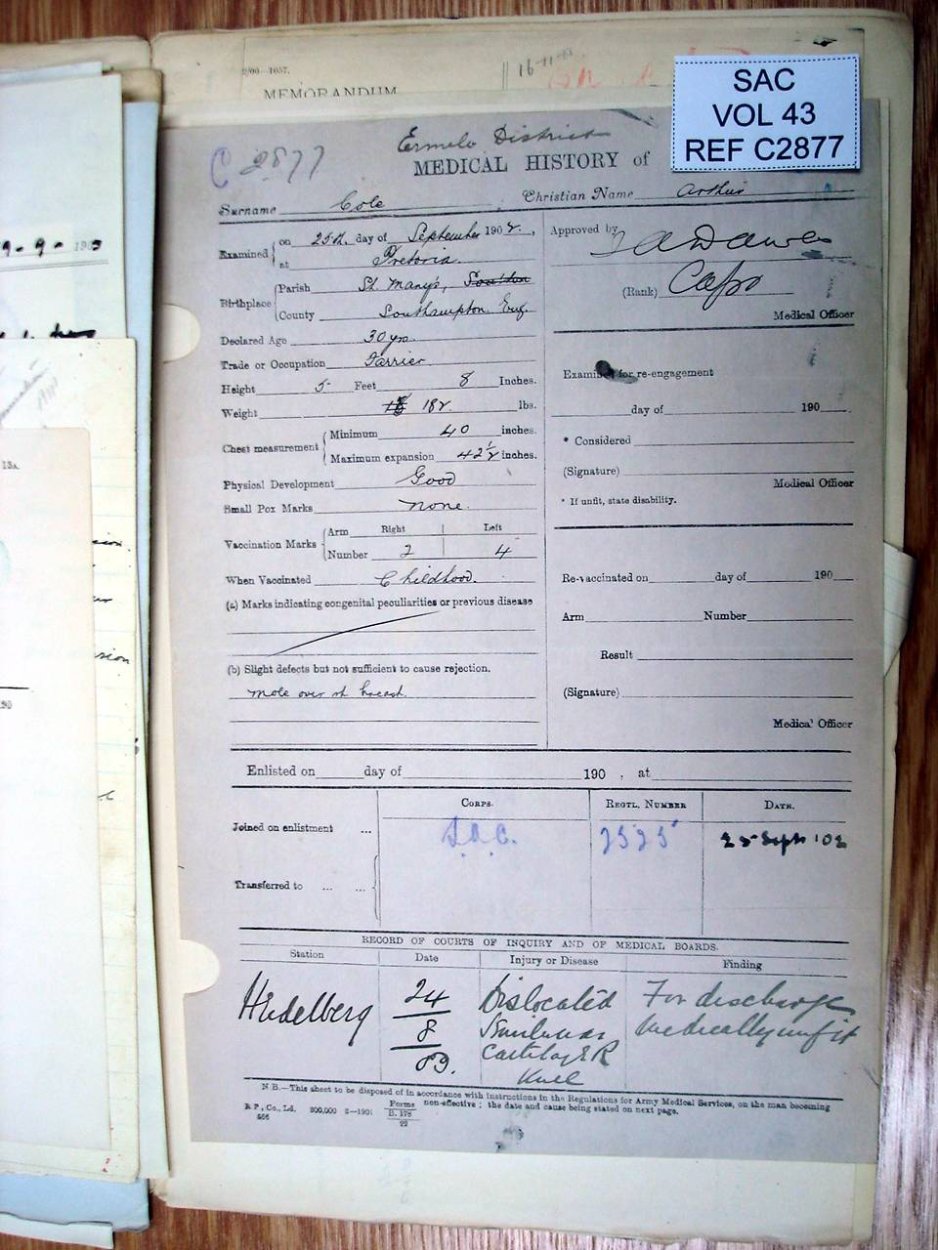 2/00—1657.
MEMORANDUM
16-11-
SAC
VOL 43
REF C2877
C 2877
Ermelo District
MEDICAL HISTORY of
Surname Cole Christian Name Arthur
Examined on 25th day of September 1902,
at Pretoria.
Birthplace Parish St. Mary's,
County Southampton Eng.
Declared Age 30 yrs
Trade or Occupation Farrier
Height 5 Feet 8 Inches.
Weight 182 lbs.
Chest measurement Minimum 40 inches.
Maximum expansion 42½ inches.
Physical Development Good
Small Pox Marks none.
Vaccination Marks Arm Right Left
Number 2 4
When Vaccinated Childhood.
(a) Marks indicating congenital peculiarities or previous disease
(b) Slight defects but not sufficient to cause rejection.
mole over rt breast
Approved by
(Rank) Capt
Medical Officer
Examined for re-engagement
day of 190
* Considered
(Signature)
Medical Officer
* If unfit, state disability.
Re-vaccinated on day of 190
Arm Number
Result
(Signature)
Medical Officer
Enlisted on day of 190 , at
Corps. Regtl. Number Date.
Joined on enlistment ... S.A.C. 2525 25 Sept '02
Transferred to ... ...
RECORD OF COURTS OF INQUIRY AND OF MEDICAL BOARDS.
Station Date Injury or Disease Finding
Heidelberg 24 Dislocated For discharge
8 Semilunar Medically unfit
03. Cartilage R
Knee
N.B.—This sheet to be disposed of in accordance with instructions in the Regulations for Army Medical Services, on the man becoming
non-effective; the date and cause being stated on next page.
B P, Co., Ld. 300,000 2—1901 Forms
B. 178